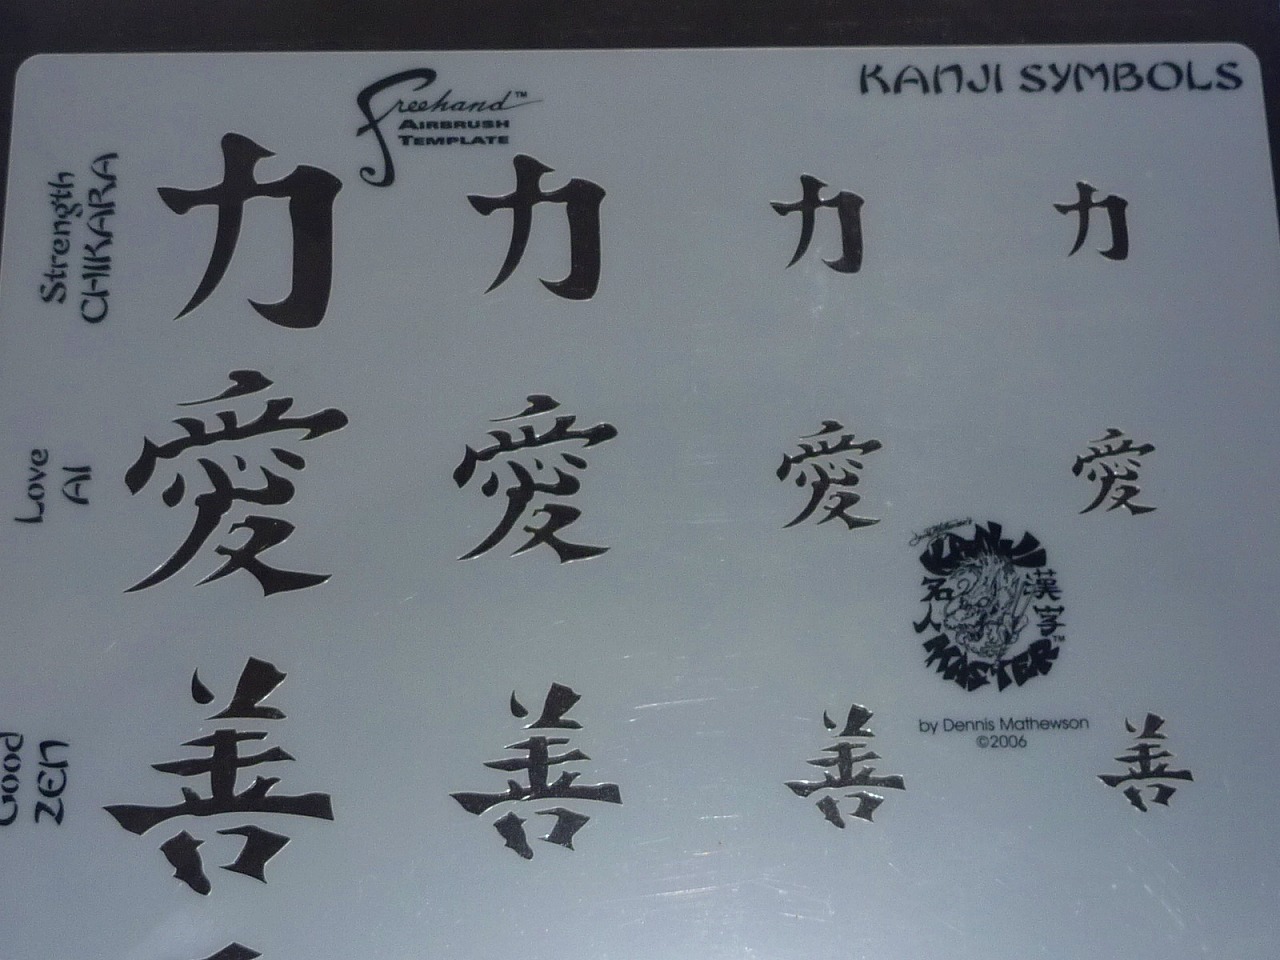 Freehand™
AIRBRUSH
TEMPLATE
KANJI SYMBOLS
Strength
CHIKARA
力 力 力 力
Love
AI
愛 愛 愛 愛
KANJI
漢字
名人
MASTER™
by Dennis Mathewson
©2006
Good
ZEN
善 善 善 善